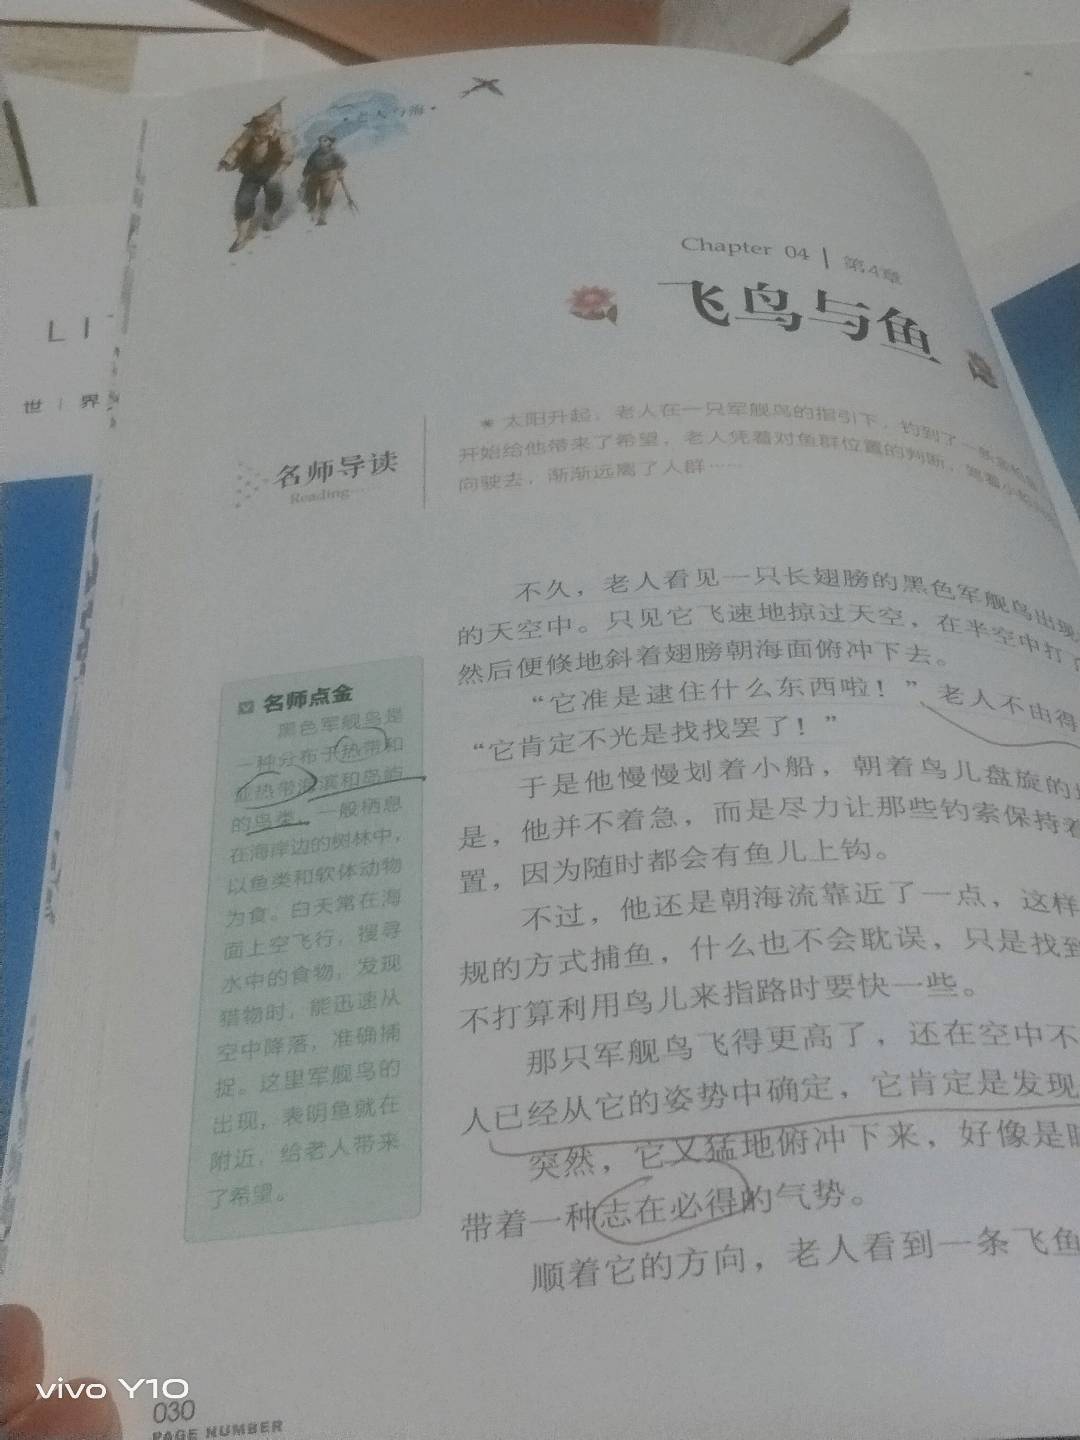 ·老人与海·
Chapter 04 | 第4章
飞鸟与鱼
LI
世 | 界
名师导读
Reading……
太阳升起，老人在一只军舰鸟的指引下，钓到了一条
开始给他带来了希望，老人凭着对鱼群位置的判断，
向驶去，渐渐远离了人群……
不久，老人看见一只长翅膀的黑色军舰鸟出现
的天空中。只见它飞速地掠过天空，在半空中打
然后便倏地斜着翅膀朝海面俯冲下去。
“它准是逮住什么东西啦！”老人不由得
“它肯定不光是找找罢了！”
于是他慢慢划着小船，朝着鸟儿盘旋的
是，他并不着急，而是尽力让那些钓索保持着
置，因为随时都会有鱼儿上钩。
不过，他还是朝海流靠近了一点，这样
规的方式捕鱼，什么也不会耽误，只是找到
不打算利用鸟儿来指路时要快一些。
那只军舰鸟飞得更高了，还在空中不
人已经从它的姿势中确定，它肯定是发现
突然，它又猛地俯冲下来，好像是
带着一种志在必得的气势。
顺着它的方向，老人看到一条飞鱼
名师点金
黑色军舰鸟是
一种分布于热带和
亚热带海滨和岛屿
的鸟类，一般栖息
在海岸边的树林中，
以鱼类和软体动物
为食。白天常在海
面上空飞行，搜寻
水中的食物，发现
猎物时，能迅速从
空中降落，准确捕
捉。这里军舰鸟的
出现，表明鱼就在
附近，给老人带来
了希望。
vivo Y10
030
PAGE NUMBER